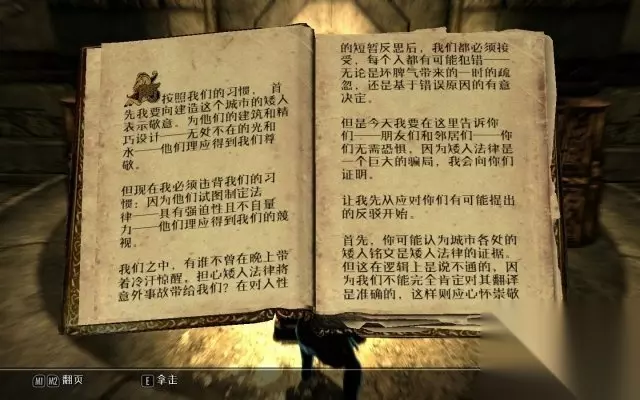 按照我们的习惯，首
先我要向建造这个城市的矮人
表示敬意。为他们的建筑和精
巧设计——无处不在的光和
水——他们理应得到我们尊
敬。
但现在我必须违背我们的习
惯：因为他们试图制定法
律——具有强迫性且不自量
力——他们理应得到我们的蔑
视。
我们之中，有谁不曾在晚上带
着冷汗惊醒，担心矮人法律将
意外事故带给我们？在对人性
的短暂反思后，我们都必须接
受，每个人都有可能犯错——
无论是坏脾气带来的一时的疏
忽，还是基于错误原因的有意
决定。
但是今天我要在这里告诉你
们——朋友们和邻居们——你
们无需恐惧，因为矮人法律是
一个巨大的骗局，我会向你们
证明。
让我先从应对你们有可能提出
的反驳开始。
首先，你可能认为城市各处的
矮人铭文是矮人法律的证据。
但这在逻辑上是说不通的，因
为我们不能完全肯定对其翻译
是准确的，这样则应心怀崇敬
M1 M2 翻页
E 拿走